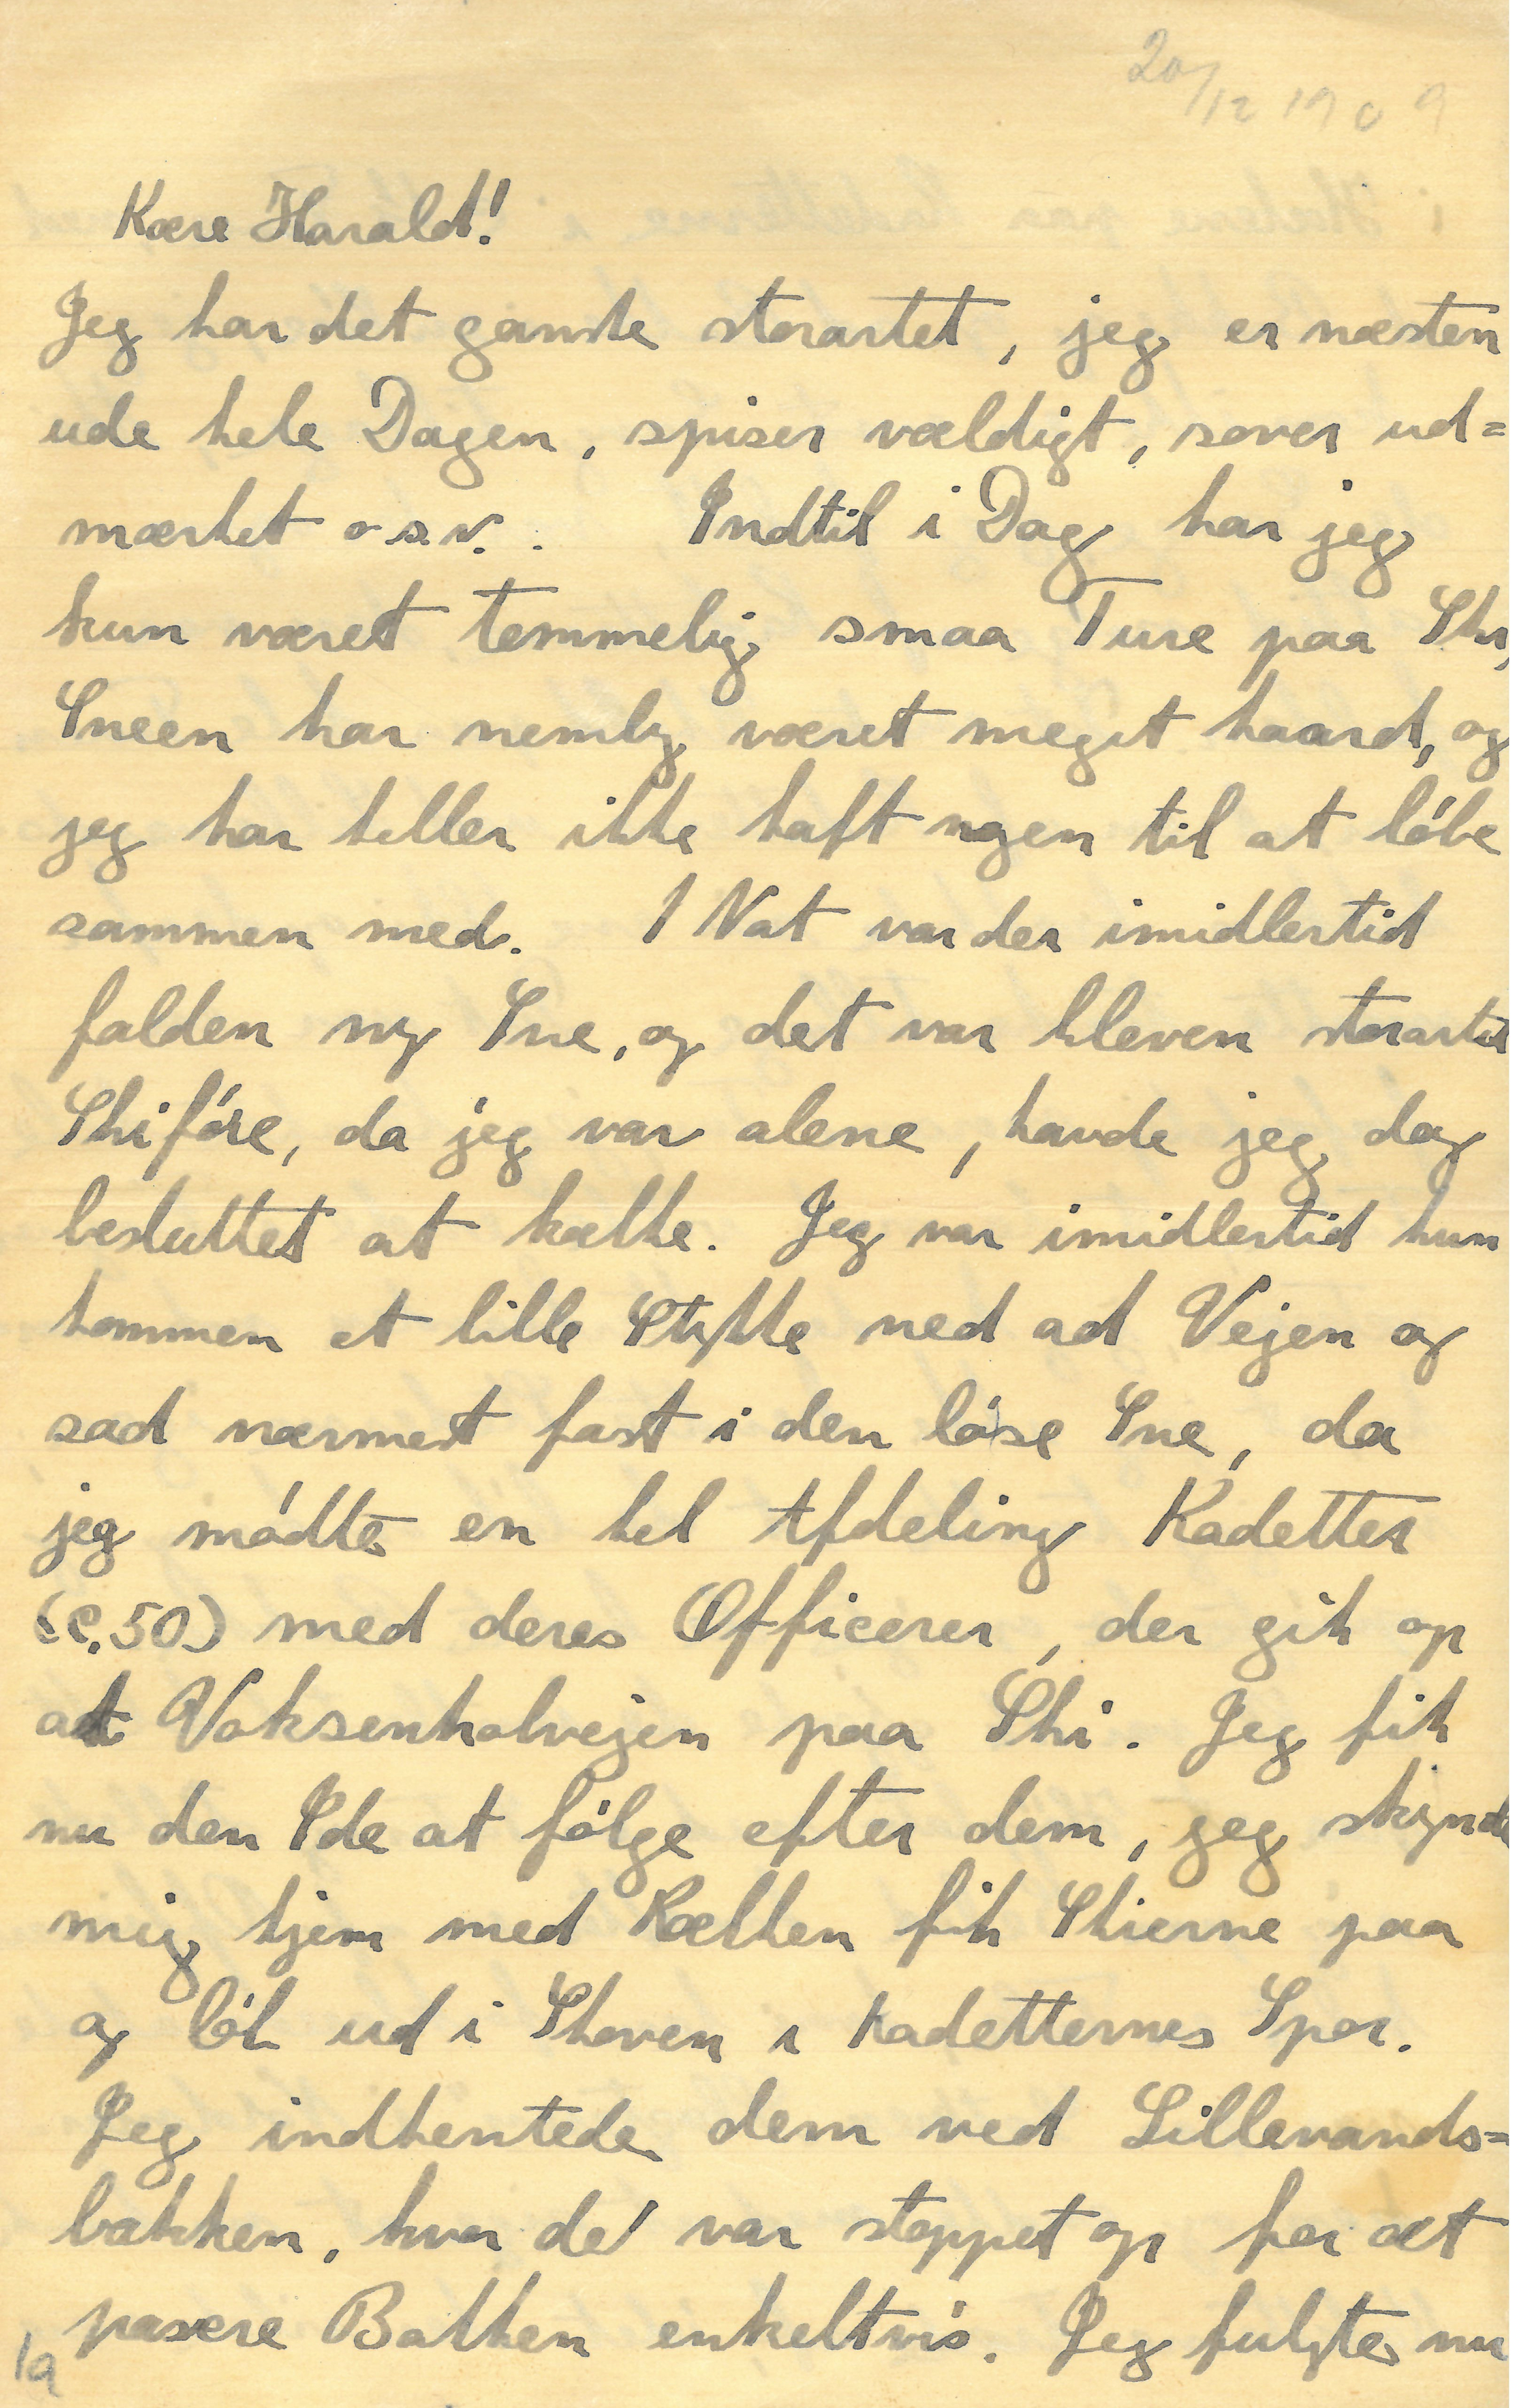 20/12 1909
Kære Harald!
Jeg har det ganske storartet, jeg er næsten
ude hele Dagen, spiser vældigt, sover ud=
mærket o.s.v.. Indtil i Dag har jeg
kun været temmelig smaa Ture paa Ski,
Sneen har nemlig været meget haard, og
jeg har heller ikke haft nogen til at løbe
sammen med. I Nat var der imidlertid
falden ny Sne, og det var bleven storartet
Skiføre, da jeg var alene, havde jeg dog
besluttet at kælke. Jeg var imidlertid kun
kommen et lille Stykke ned ad Vejen og
sad nærmest fast i den løse Sne, da
jeg mødte en hel Afdeling Kadetter
(c.50) med deres Officerer, der gik op
ad Voksenkolvejen paa Ski. Jeg fik
nu den Ide at følge efter dem, jeg skynde
mig hjem med Kælken fik Skierne paa
og løb ud i Skoven i Kadetternes Spor.
Jeg indhentede dem ved Lillevands=
bakken, hvor de var stoppet op for at
passere Bakken enkeltvis. Jeg fulgte nu
1a